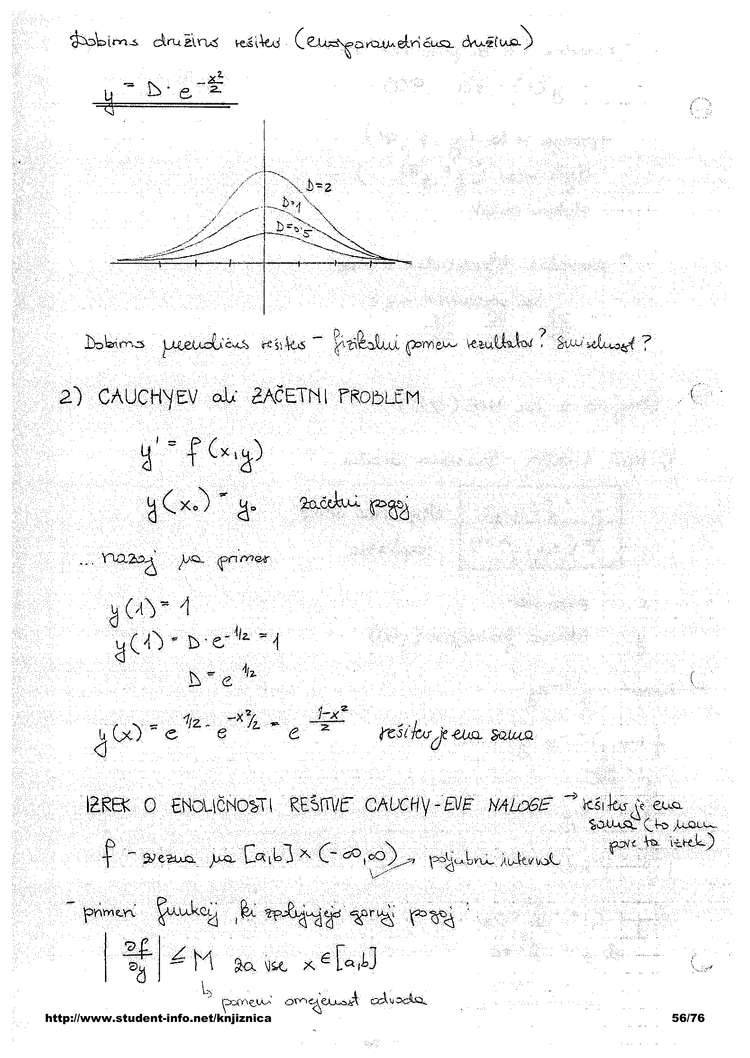 Dobimo družino rešitev (enoparametrična družina)
y = D · e^{-x²/2}
D=2
D=1
D=0.5
Dobimo rešitev – fizikalni pomen rezultatov? Smiselnost?
2) CAUCHYEV ali ZAČETNI PROBLEM
y' = f(x,y)
y(x₀) = y₀ začetni pogoj
... nazaj na primer
y(1) = 1
y(1) = D·e^{-1/2} = 1
D = e^{1/2}
y(x) = e^{1/2} · e^{-x²/2} = e^{(1-x²)/2} rešitev je ena sama
IZREK O ENOLIČNOSTI REŠITVE CAUCHY-EVE NALOGE → rešitev je ena
sama (to nam
pove ta izrek)
f – zvezna na [a,b] × (-∞,∞) → poljubni interval
- primeri funkcij, ki izpolnjujejo gornji pogoj:
|∂f/∂y| ≤ M za vse x ∈ [a,b]
↳ pomeni omejenost odvoda
http://www.student-info.net/knjiznica 56/76